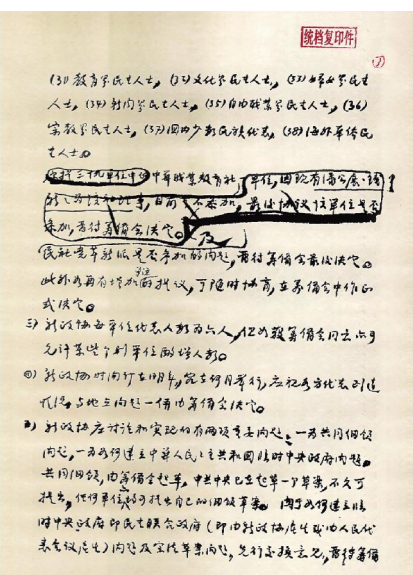 统档复印件
(31)教育界民主人士，(32)文化界民主人士，(33)妇女界民主
人士，(34)新闻界民主人士，(35)自由职业界民主人士，(36)
宗教界民主人士，(37)国内少数民族代表，(38)海外华侨民
主人士。
中华职业教育社
单位，因
目前
不参加，最后协议该单位是否
参加，留待筹备会决定。及
民社党革新派是否参加的问题，留待筹备会最后决定。
此外如再有增加单位的提议，可随时协商，在筹备会中作正
式决定。
三)新政协每单位代表人数为六人，但如经筹备会同意亦可
允许某些个别单位酌增人数。
四)新政协时间行在明年，究在何月举行，应视各方代表到达
情况，与地点问题一借由筹备会决定。
五)新政协应讨论和实现的有两项重要问题：一为共同纲领
问题，一为如何建立中华人民民主共和国临时中央政府问题。
共同纲领，由筹备会起草，中共中央已在起草一个草案，不久可
提出，任何单位均可提出自己的纲领草案。关于如何建立临
时中央政府即民主联合政府（即由新政协产生或由人民代
表会议产生）问题及宪法草案问题，先行交换意见，留待筹备